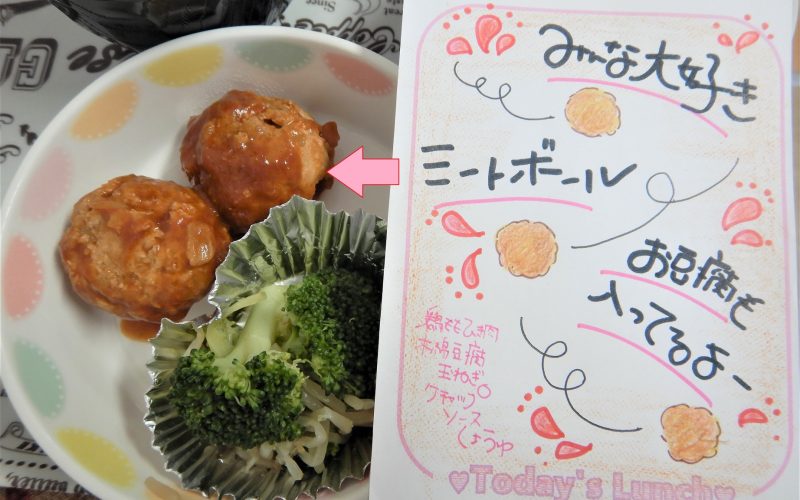 みんな大好き
ミートボール
お豆腐も
入ってるよー
鶏ももひき肉
木綿豆腐
玉ねぎ
ケチャップ
ソース
しょうゆ
♥Today's Lunch♥
Since
Coffee